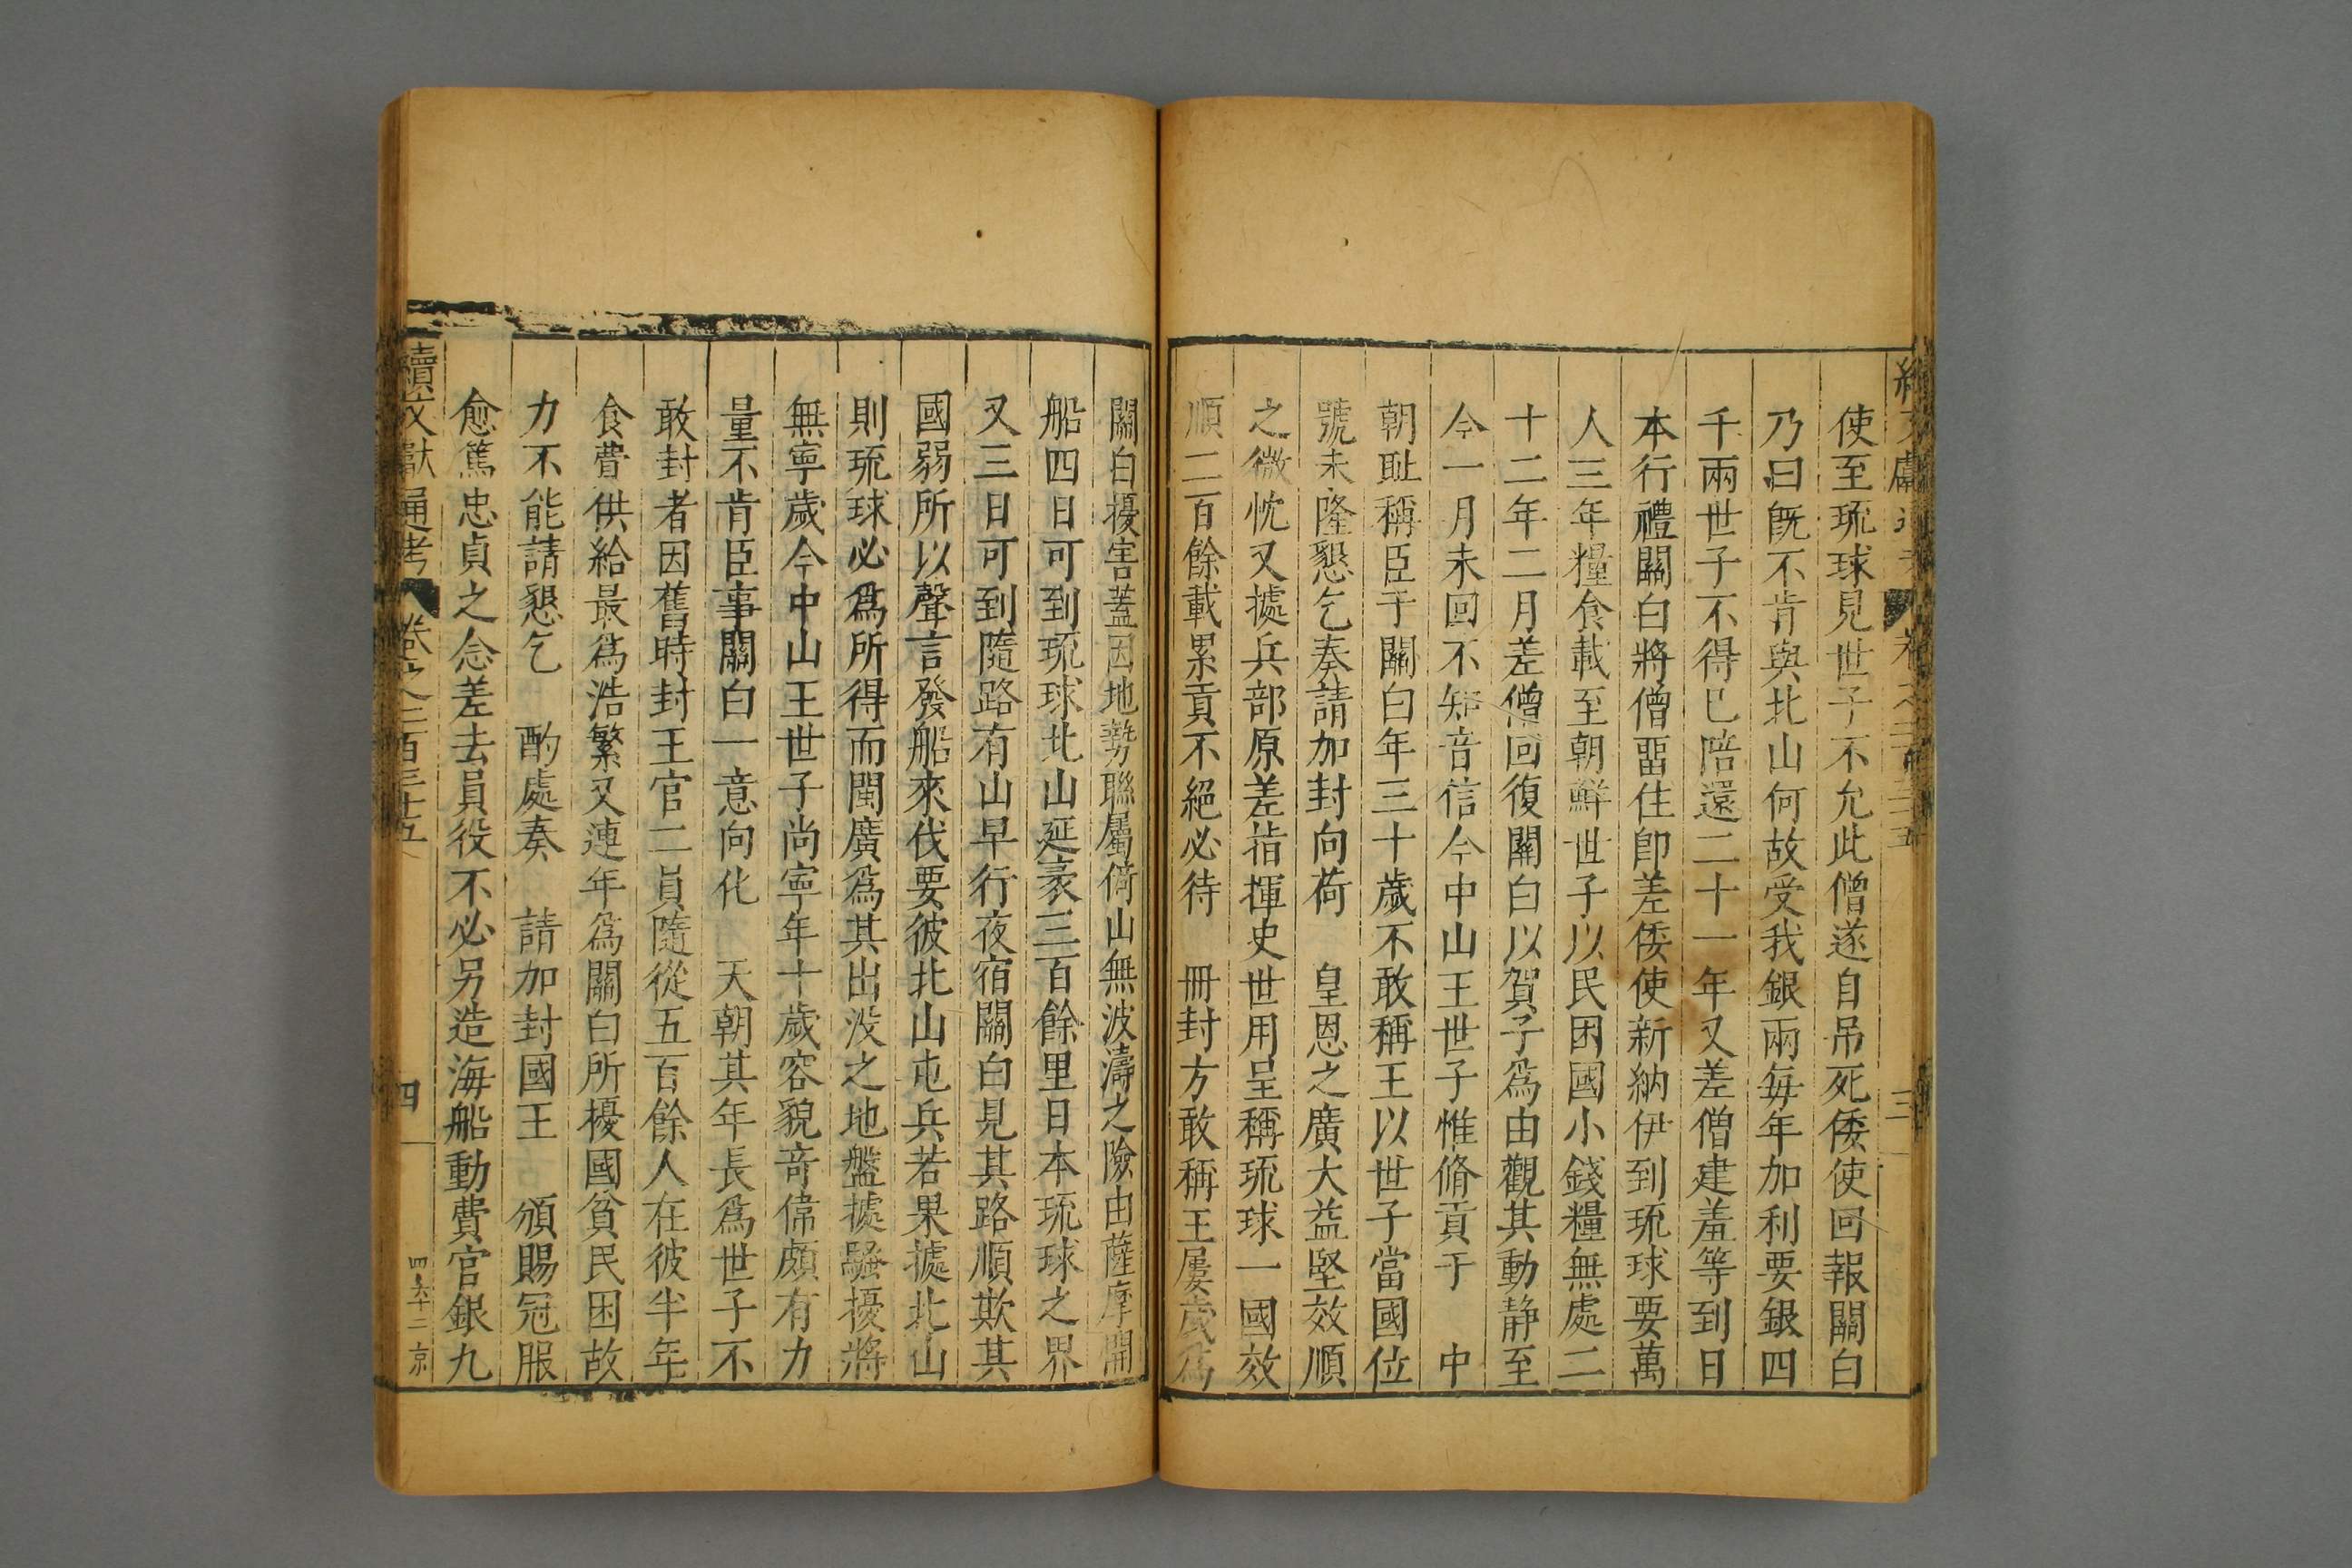 續文獻通考 卷之二百三十五 三
使至琉球見世子不允此僧遂自吊死倭使回報關白
乃曰旣不肯與北山何故受我銀兩每年加利要銀四
千兩世子不得已陪還二十一年又差僧建羞等到日
本行禮關白將僧畱住卽差倭使新納伊到琉球要萬
人三年糧食載至朝鮮世子以民困國小錢糧無處二
十二年二月差僧回復關白以賀子爲由觀其動静至
今一月未回不知音信今中山王世子惟脩貢于 中
朝耻稱臣于關白年三十歲不敢稱王以世子當國位
號未隆懇乞奏請加封向荷 皇恩之廣大益堅效順
之微忱又據兵部原差指揮史世用呈稱琉球一國效
順二百餘載累貢不絕必待 冊封方敢稱王屢歲爲
關白擾害蓋因地勢聯屬倚山無波濤之險由薩摩開
船四日可到琉球北山延袤三百餘里日本琉球之界
又三日可到隨路有山早行夜宿關白見其路順欺其
國弱所以聲言發船來伐要彼北山屯兵若果據北山
則琉球必爲所得而閩廣爲其出没之地盤據騷擾將
無寧歲今中山王世子尚寧年十歲容貌竒偉頗有力
量不肯臣事關白一意向化 天朝其年長爲世子不
敢封者因舊時封王官二員隨從五百餘人在彼半年
食費供給最爲浩繁又連年爲關白所擾國貧民困故
力不能請懇乞 酌處奏 請加封國王 頒賜冠服
愈篤忠貞之念差去員役不必另造海船動費官銀九
續文獻通考 卷之二百三十五 四 四六十二 京